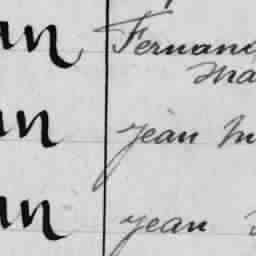 an Fernand
Ma
an Jean M
an Jean